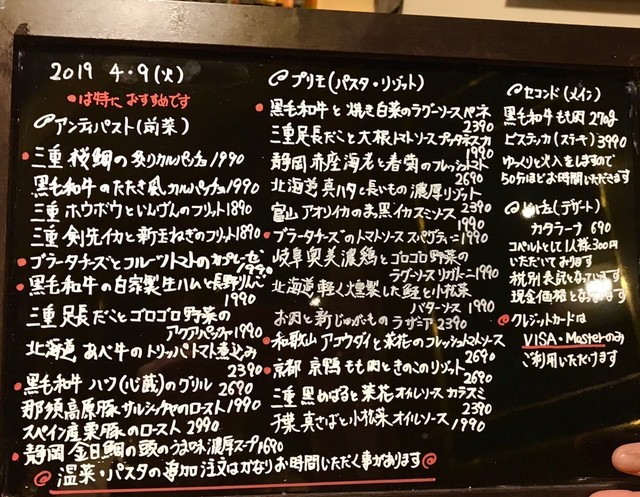 2019 4・9(火)
●は特におすすめです
アンティパスト(前菜)
●三重 桜鯛の炙りカルパッチョ 1990
黒毛和牛のたたき風カルパッチョ 1990
三重 ホウボウといんげんのフリット 1890
三重 剣先イカと新玉ねぎのフリット 1890
●ブラータチーズとフルーツトマトのカプレーゼ
1990
●黒毛和牛の自家製生ハムと長野りんご
1990
三重 足長だことゴロゴロ野菜の
アクアパッツァ 1990
北海道 あべ牛のトリッパトマト煮込み
2390
●黒毛和牛 ハツ(心臓)のグリル 2690
那須高原豚サルシッチャのロースト 1990
スペイン産栗豚のロースト 2990
●静岡 金目鯛の頭のうま味濃厚スープ 1690
プリモ(パスタ・リゾット)
●黒毛和牛と焼き白菜のラグーソース ペンネ
2390
三重 足長だこと大根トマトソース プッタネスカ
1990
静岡 赤座海老と春菊のフレッシュトマト
2690
北海道 真ハタと長いもの濃厚リゾット
2390
富山 アオリイカのまっ黒イカスミソース
1990
●ブラータチーズのトマトソース スパゲティーニ 1990
岐阜 奥美濃鶏とゴロゴロ野菜の
ラグーソース リガトーニ 1990
北海道 軽く燻製した鮭と小松菜
バターソース 1990
お肉と新じゃがいもの ラザニア 2390
●和歌山 アコウダイと菜花のフレッシュトマトソース
2690
●京都 京鴨もも肉ときのこのリゾット
2690
三重 黒めばると菜花オイルソース カラスミ
2390
千葉 真さばと小松菜オイルソース
1990
セコンド(メイン)
黒毛和牛もも肉 270g
ビステッカ(ステーキ) 3990
ゆっくりと火入をしますので
50分ほどお時間いただきます
ドルチェ(デザート)
カタラーナ 690
コペルトとして1人様300円
いただいております
税別表記となっています
現金価格となります
クレジットカードは
VISA・Masterのみ
ご利用いただけます
温菜・パスタの追加注文はかなりお時間いただく事があります